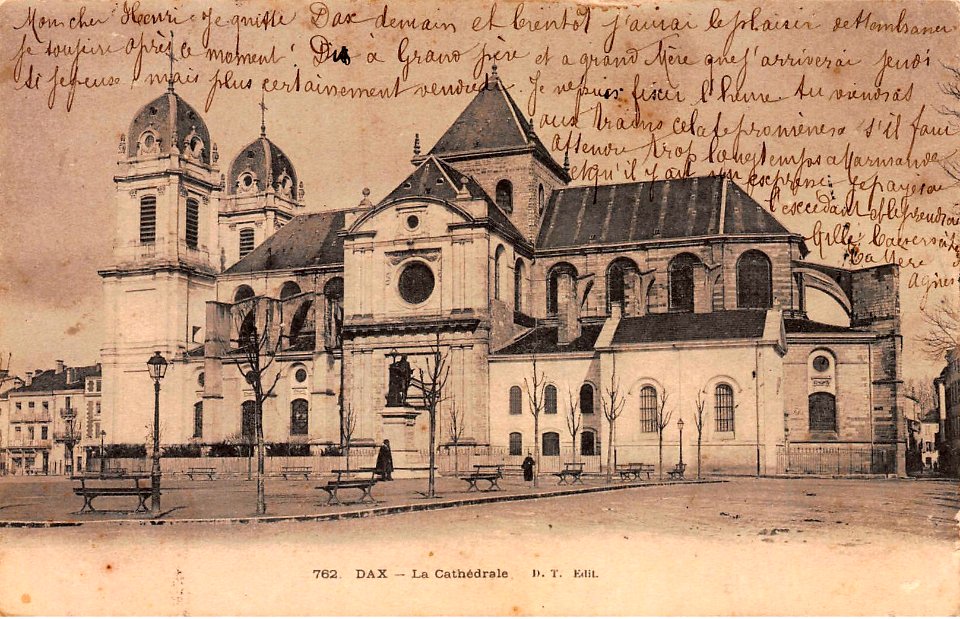 Mon cher Henri Je quitte Dax demain et bientôt j'aurai le plaisir de t'embrasser
je toujours Après ce moment! Dis à Grand père et a grand Mère que j'arriverai jeudi
si je peuse mais plus certainement vendredi. Je ne puis fixer l'heure tu viendras
aux trains cela te promènera s'il faut
attendre trop longtemps a Marmande
et qu'il y ait un express je payerai
l'excédant et le prendrai
Mille Caresses
ta Mère
Agnès
762. DAX — La Cathédrale D. T. Edit.